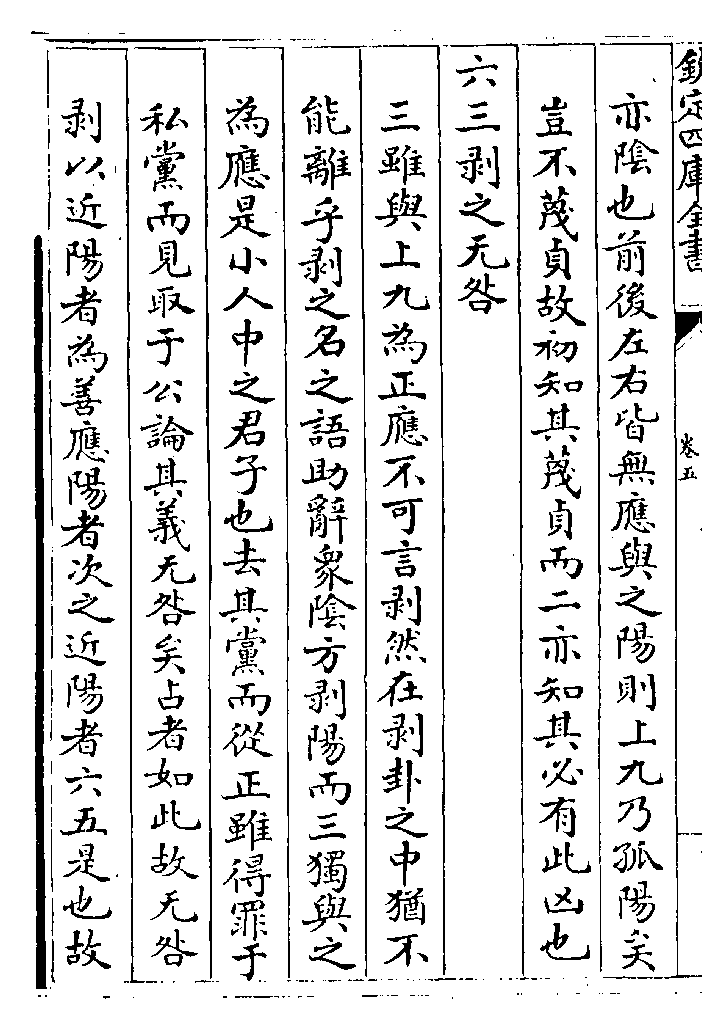 欽定四庫全書
卷五
亦陰也前後左右皆無應與之陽則上九乃孤陽矣
豈不蔑貞故初知其蔑貞而二亦知其必有此凶也
六三剥之无咎
三雖與上九為正應不可言剥然在剥卦之中猶不
能離乎剥之名之語助辭衆陰方剥陽而三獨與之
為應是小人中之君子也去其黨而從正雖得罪于
私黨而見取于公論其義无咎矣占者如此故无咎
剥以近陽者為善應陽者次之近陽者六五是也故